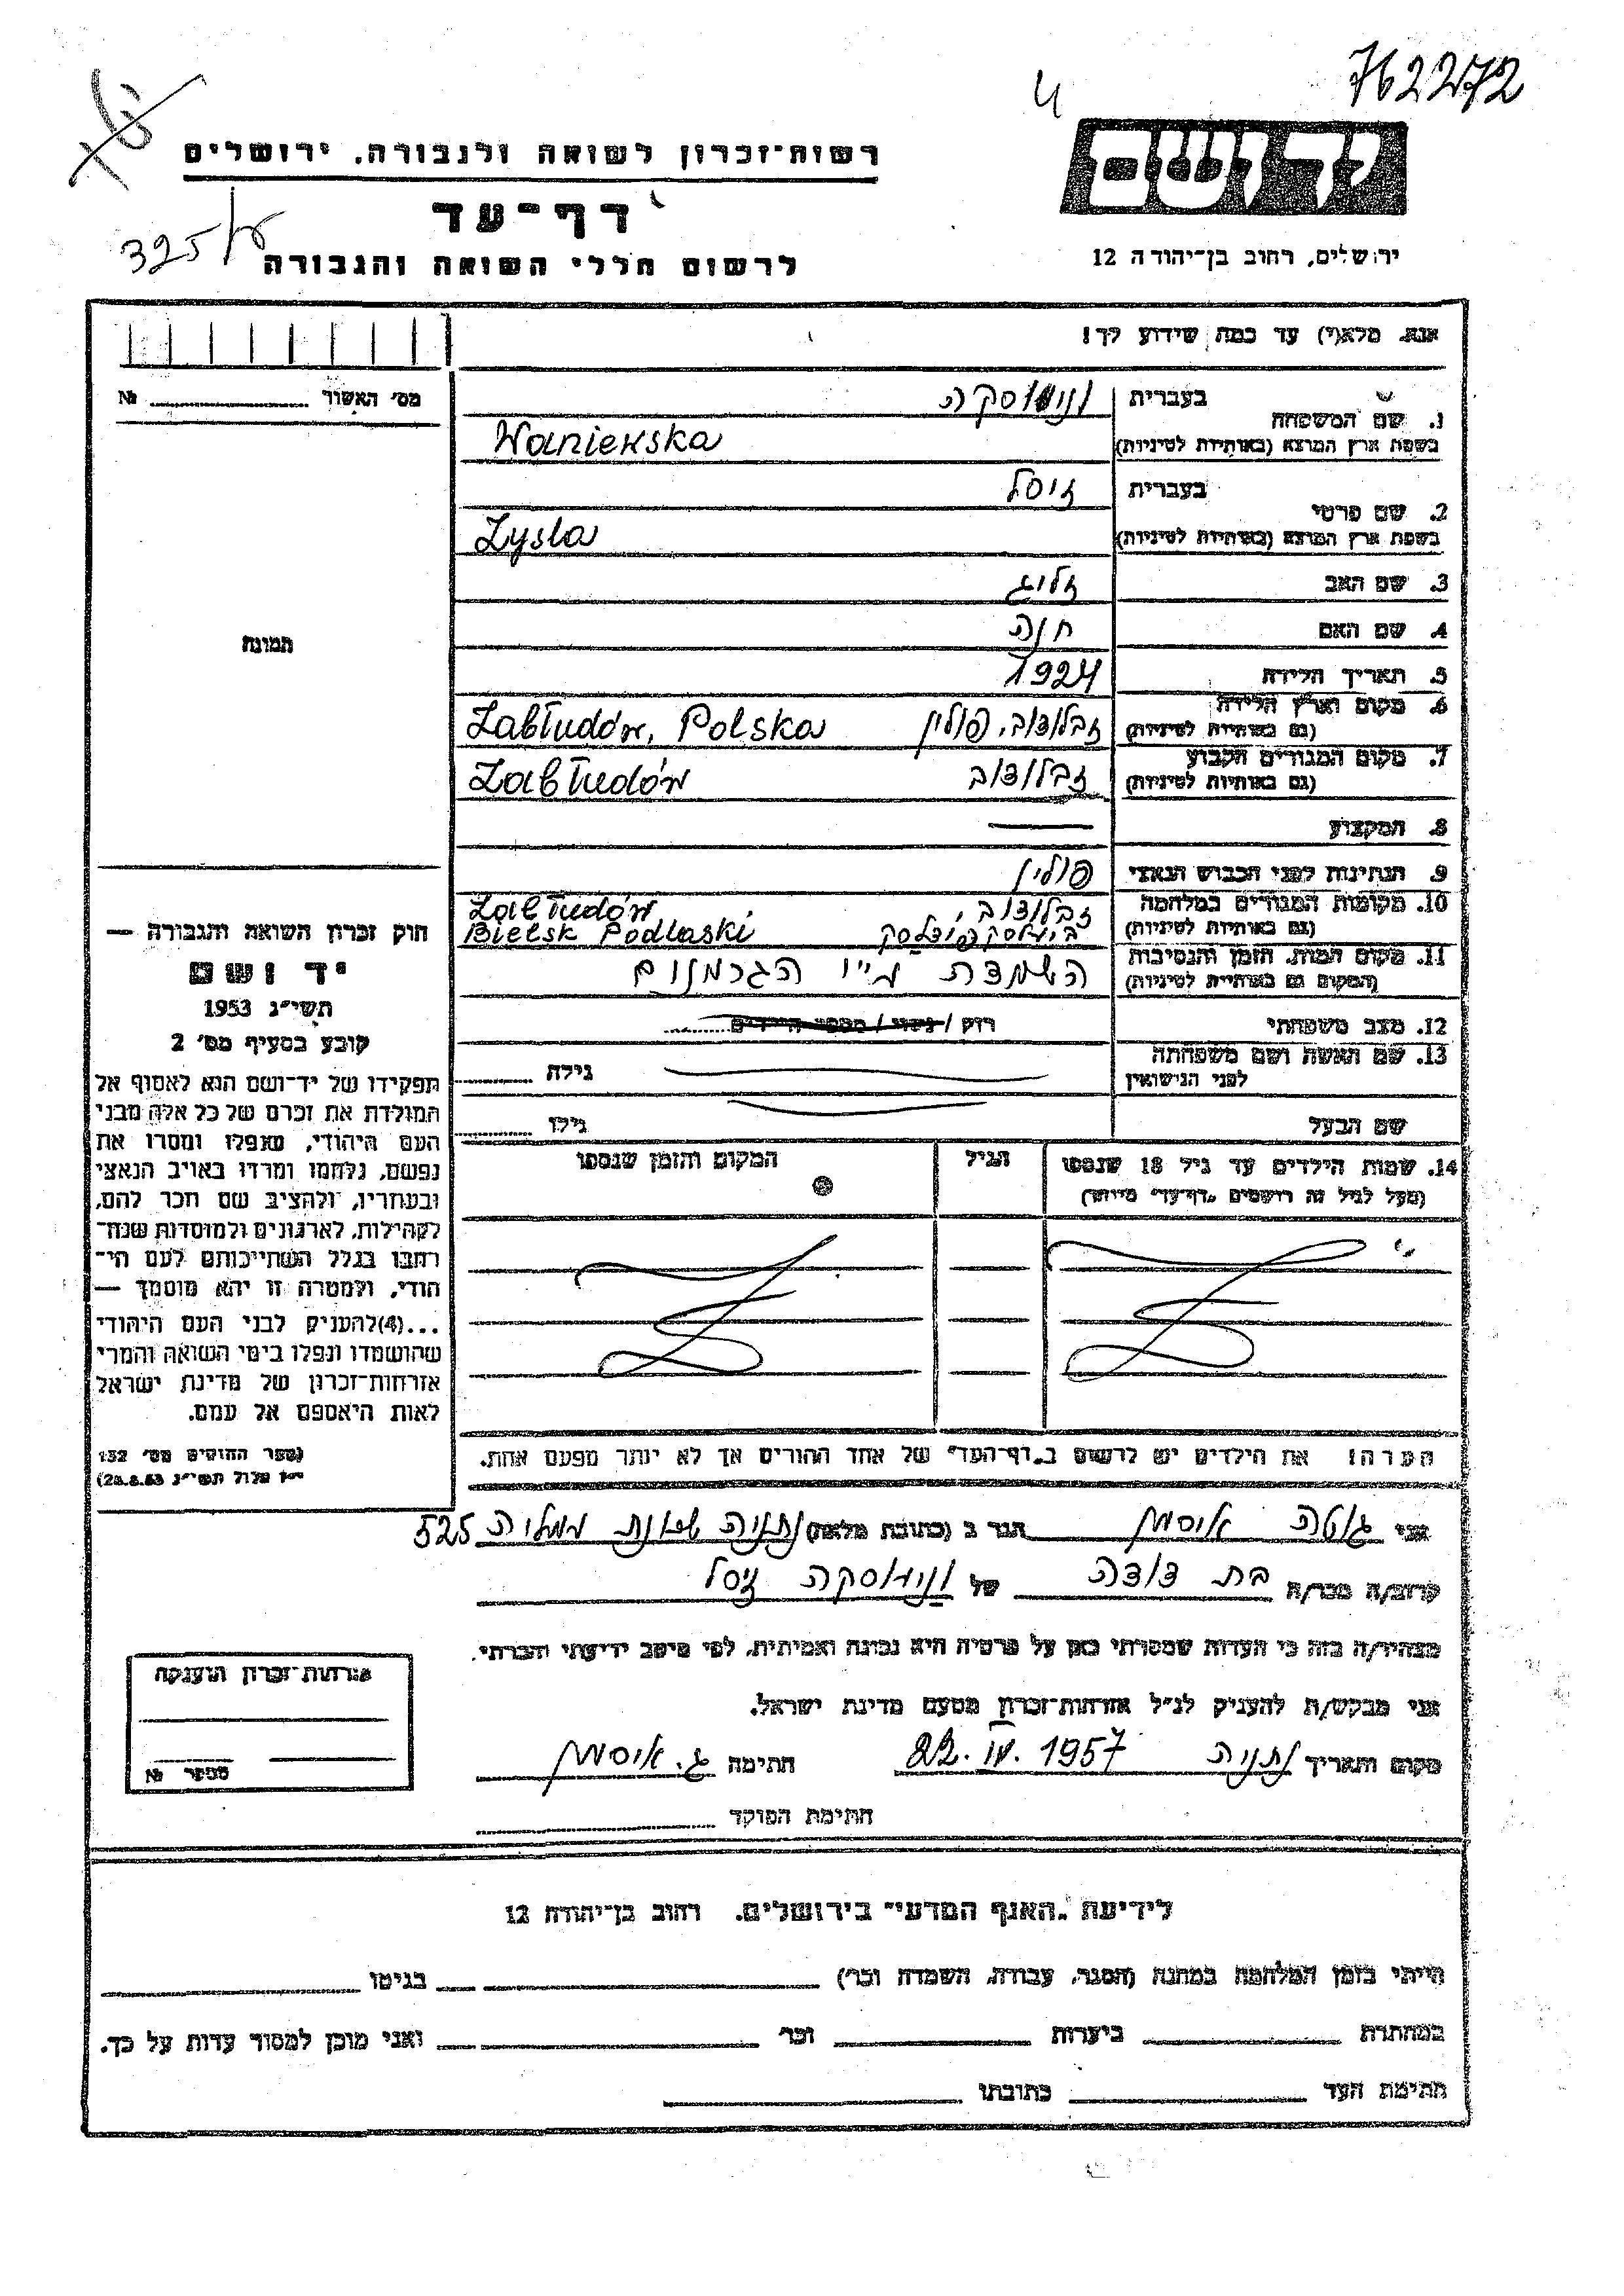 762272
4
יד ושם
רשות-זכרון לשואה ולגבורה, ירושלים
דף-עד
325/
לרשום חללי השואה והגבורה
ירושלים, רחוב בן-יהודה 12
אנא, מלא(י) עד כמה שידוע לך!
מס' האשור № 
1. שם המשפחה
בעברית
בשפת ארץ המוצא (באותיות לטיניות)
Waniewska
2. שם פרטי
בעברית זיסל
בשפת ארץ המוצא (באותיות לטיניות)
Zysla
3. שם האב זליג
4. שם האם חנה
תמונה
5. תאריך הלידה 1924
6. מקום וארץ הלידה
(גם באותיות לטיניות)
זבלודוב, פולין Zabłudów, Polska
7. מקום המגורים הקבוע
(גם באותיות לטיניות)
זבלודוב Zabłudów
8. המקצוע —
9. הנתינות לפני הכבוש הנאצי פולין
10. מקומות המגורים במלחמה
(גם באותיות לטיניות)
זבלודוב Zabłudów
Bielsk Podlaski
11. מקום המות, הזמן והנסיבות
(המקום גם באותיות לטיניות)
השמדת ע"י הגרמנים
12. מצב משפחתי
רווק / נשוי / מספר הילדים
13. שם האשה ושם משפחתה
לפני הנישואין
גילה
שם הבעל
גילו
14. שמות הילדים עד גיל 18 שנספו
(מעל לגיל זה רושמים "דף-עד" מיוחד)
הגיל
המקום והזמן שנספו
חוק זכרון השואה והגבורה —
יד ושם
תשי"ג 1953
קובע בסעיף מס' 2
תפקידו של יד-ושם הוא לאסוף אל
המולדת את זכרם של כל אלה מבני
העם היהודי, שנפלו ומסרו את
נפשם, נלחמו ומרדו באויב הנאצי
ובעוזריו, ולהציב שם וזכר להם,
לקהילות, לארגונים ולמוסדות שנח-
רבו בגלל השתייכותם לעם הי-
הודי, ולמטרה זו יהא מוסמך —
...(4) להעניק לבני העם היהודי
שהושמדו ונפלו בימי השואה והמרי
אזרחות-זכרון של מדינת ישראל
לאות היאספם אל עמם.
(ספר החוקים מס' 132
י"ז אלול תשי"ג 28.8.53)
הערה: את הילדים יש לרשום ב"דף-העד" של אחד ההורים אך לא יותר מפעם אחת.
אני גוטה איסמן הגר ב (כתובת מלאה) נתניה שכונת ממלית 525
קרוב/ה מכר/ה בת דודה של זיסל
מצהיר/ה בזה כי העדות שמסרתי כאן על פרטיה היא נכונה ואמיתית, לפי מיטב ידיעתי והכרתי.
אני מבקש/ת להעניק לנ"ל אזרחות-זכרון מטעם מדינת ישראל.
מקום ותאריך נתניה 22. IV. 1957 חתימה ג. איסמן
חתימת הפוקד
אזרחות-זכרון הוענקה
מספר №
לידיעת "האגף המדעי" בירושלים, רחוב בן-יהודה 12
הייתי בזמן המלחמה במחנה (הסגר, עבודה, השמדה וכו') בגיטו
במחתרת ביערות וכו' ואני מוכן למסור עדות על כך.
חתימת העד כתובתו